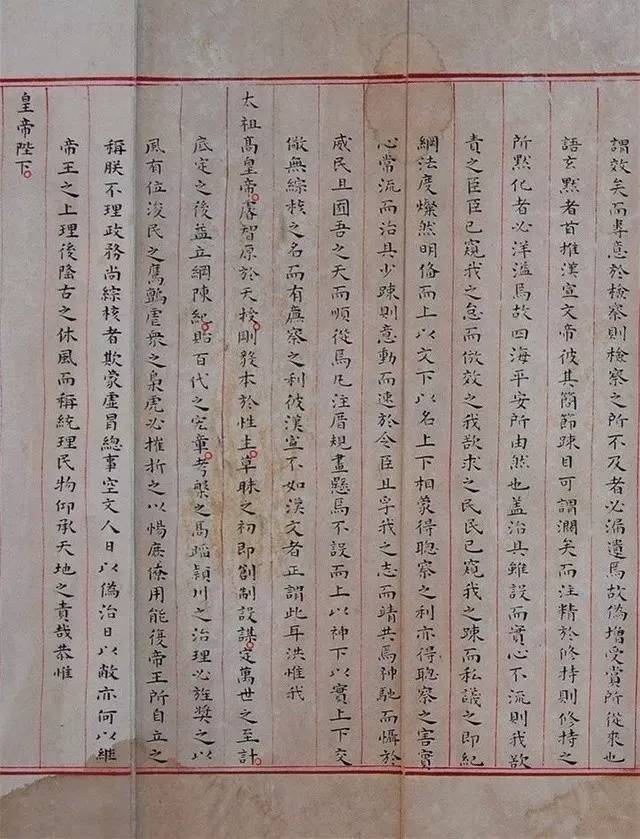 謂效矣而專意於檢察則檢察之所不及者必漏遺焉故偽增受賞所從來也
語玄默者首推漢宣文帝彼其簡節疎目可謂濶矣而注精於修持則修持之
所默化者必洋溢焉故四海平安所由然也蓋治具雖設而實心不流則我欲
責之臣臣已窺我之怠而倣效之我欲求之民民已窺我之疎而私議之即紀
綱法度燦然明俻而上以文下以名上下相蒙得聰察之利亦得聰察之害實
心常流而治具少疎則意動而速於令臣且孚我之志而靖共焉神馳而懾於
威民且囿吾之天而順從焉凡注厝規畫懸焉不設而上以神下以實上下交
儆無綜核之名而有廉察之利彼漢宣不如漢文者正謂此耳洪惟我
太祖高皇帝睿智原於天授剛發本於性生草昧之初即創制設謀定萬世之至計
底定之後益立綱陳紀貽百代之憲章考槃之高蹈潁川之治理必旌奨之以
風有位浚民之鷹鸇虐衆之梟虎必摧折之以惕庶僚用能復帝王所自立之
稱朕不理政務尚綜核者欺蒙虛冒總事空文人日以偽治日以敝亦何以継
帝王之上理後隆古之休風而稱統理民物仰承天地之責哉恭惟
皇帝陛下